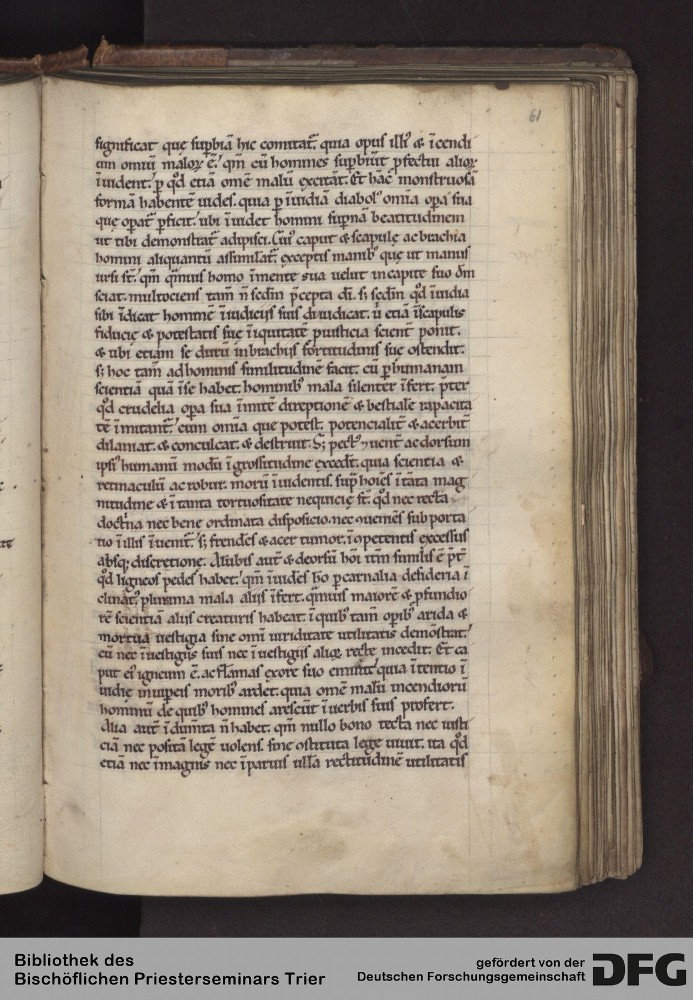 61
significat que sup̄biā hic comitat̄. quia opus illi⁹ & īcendi
um omiū maloꝝ ē. qm̄ cū homines sup̄biūt ꝓfectui alioꝝ
īuident. ꝑ qd̄ etiā omē malū excitāt. Et hāc monstruosā
formā habentē uides. quia ꝑ īuidiā diabol⁹ omīa oꝑa sua
que oꝑat̄ ꝑficit. ubi īuidet homini sup̄nā beatitudinem
ut tibi demonstrat̄ adipisci. Cui⁹ caput & scapule ac brachia
homini aliquantū assimilat̄. exceptis manib⁹ que ut manus
ursi st̄. qm̄ qmuis homo īmente sua uelut incapite suo dm̄
sciat. multociens tam̄ n̄ scdm̄ p̄cepta dī. sꝫ scdm̄ qd̄ īuidia
sibi īdicat hominē īiudicijs suis diiudicat. ū etiā īscapulis
fiducie & potestatis sue īiquitatē ꝑ iusticia scient̄ ponit.
& ubi etiam se durū inbrachijs fortitudinis sue ostendit.
sꝫ hoc tam̄ ad hominis similitudinē facit. cū ꝑ humanam
scientiā quā īse habet. hominib⁹ mala silenter īfert. p̄ter
qd̄ crudelia oꝑa sua īmitē direptionē & bestialē rapacita
tē īmitant̄. cum omīa que potest. potencialit̄ & acerbit̄
dilaniat. & conculcat. & destruit. Sꝫ pect⁹ ⁊ uent̄ ac dorsum
ipsi⁹ humanū modū īgrossitudine excedt̄. quia scientia &
retinaculū ac robur. morū īuidentis. sup̄ hoīes ītāta mag
nitudine & ītanta tortuositate nequicie st̄. qd̄ nec recta
doctrina nec bene ordinata disposicio. nec ꝯueniēs supporta
tio īillis īuenit̄. sꝫ frendēs & acer tumor. īꝯpetentis excessus
absqꝫ discretione. A lūbis aut̄ & deorsū hōi itm̄ similis ē p̄t̄
qd̄ ligneos pedes habet. qm̄ īuidēs hō ꝑ carnalia desideria ī
clinat⁹ plurima mala alijs īfert. qmuis maiorē & ꝓfundio
rē scientiā alijs creaturis habeat. īquib⁹ tam̄ oꝑib⁹ arida &
mortua uestigia sine omī uiriditate utilitatis demōstrat.
cū nec īuestigijs suis nec īuestigijs alioꝝ recte incedit. Et ca
put ei⁹ igneum ē. ac flāmas exore suo emittit quia ītentio ī
uidie inuipeis morib⁹ ardet. quia omē malū incendiorū
hominū de quib⁹ homines arescūt īuerbis suis profert.
Alia aut̄ īdumt̄a n̄ habet. qm̄ nullo bono tecta nec iusti
ciā nec positā legē uolens. sine ꝯstituta lege uiuit. ita qd̄
etiā nec īmagnis nec īparuis ulla rectitudinē utilitatis
Bibliothek des
Bischöflichen Priesterseminars Trier
gefördert von der
Deutschen Forschungsgemeinschaft
DFG